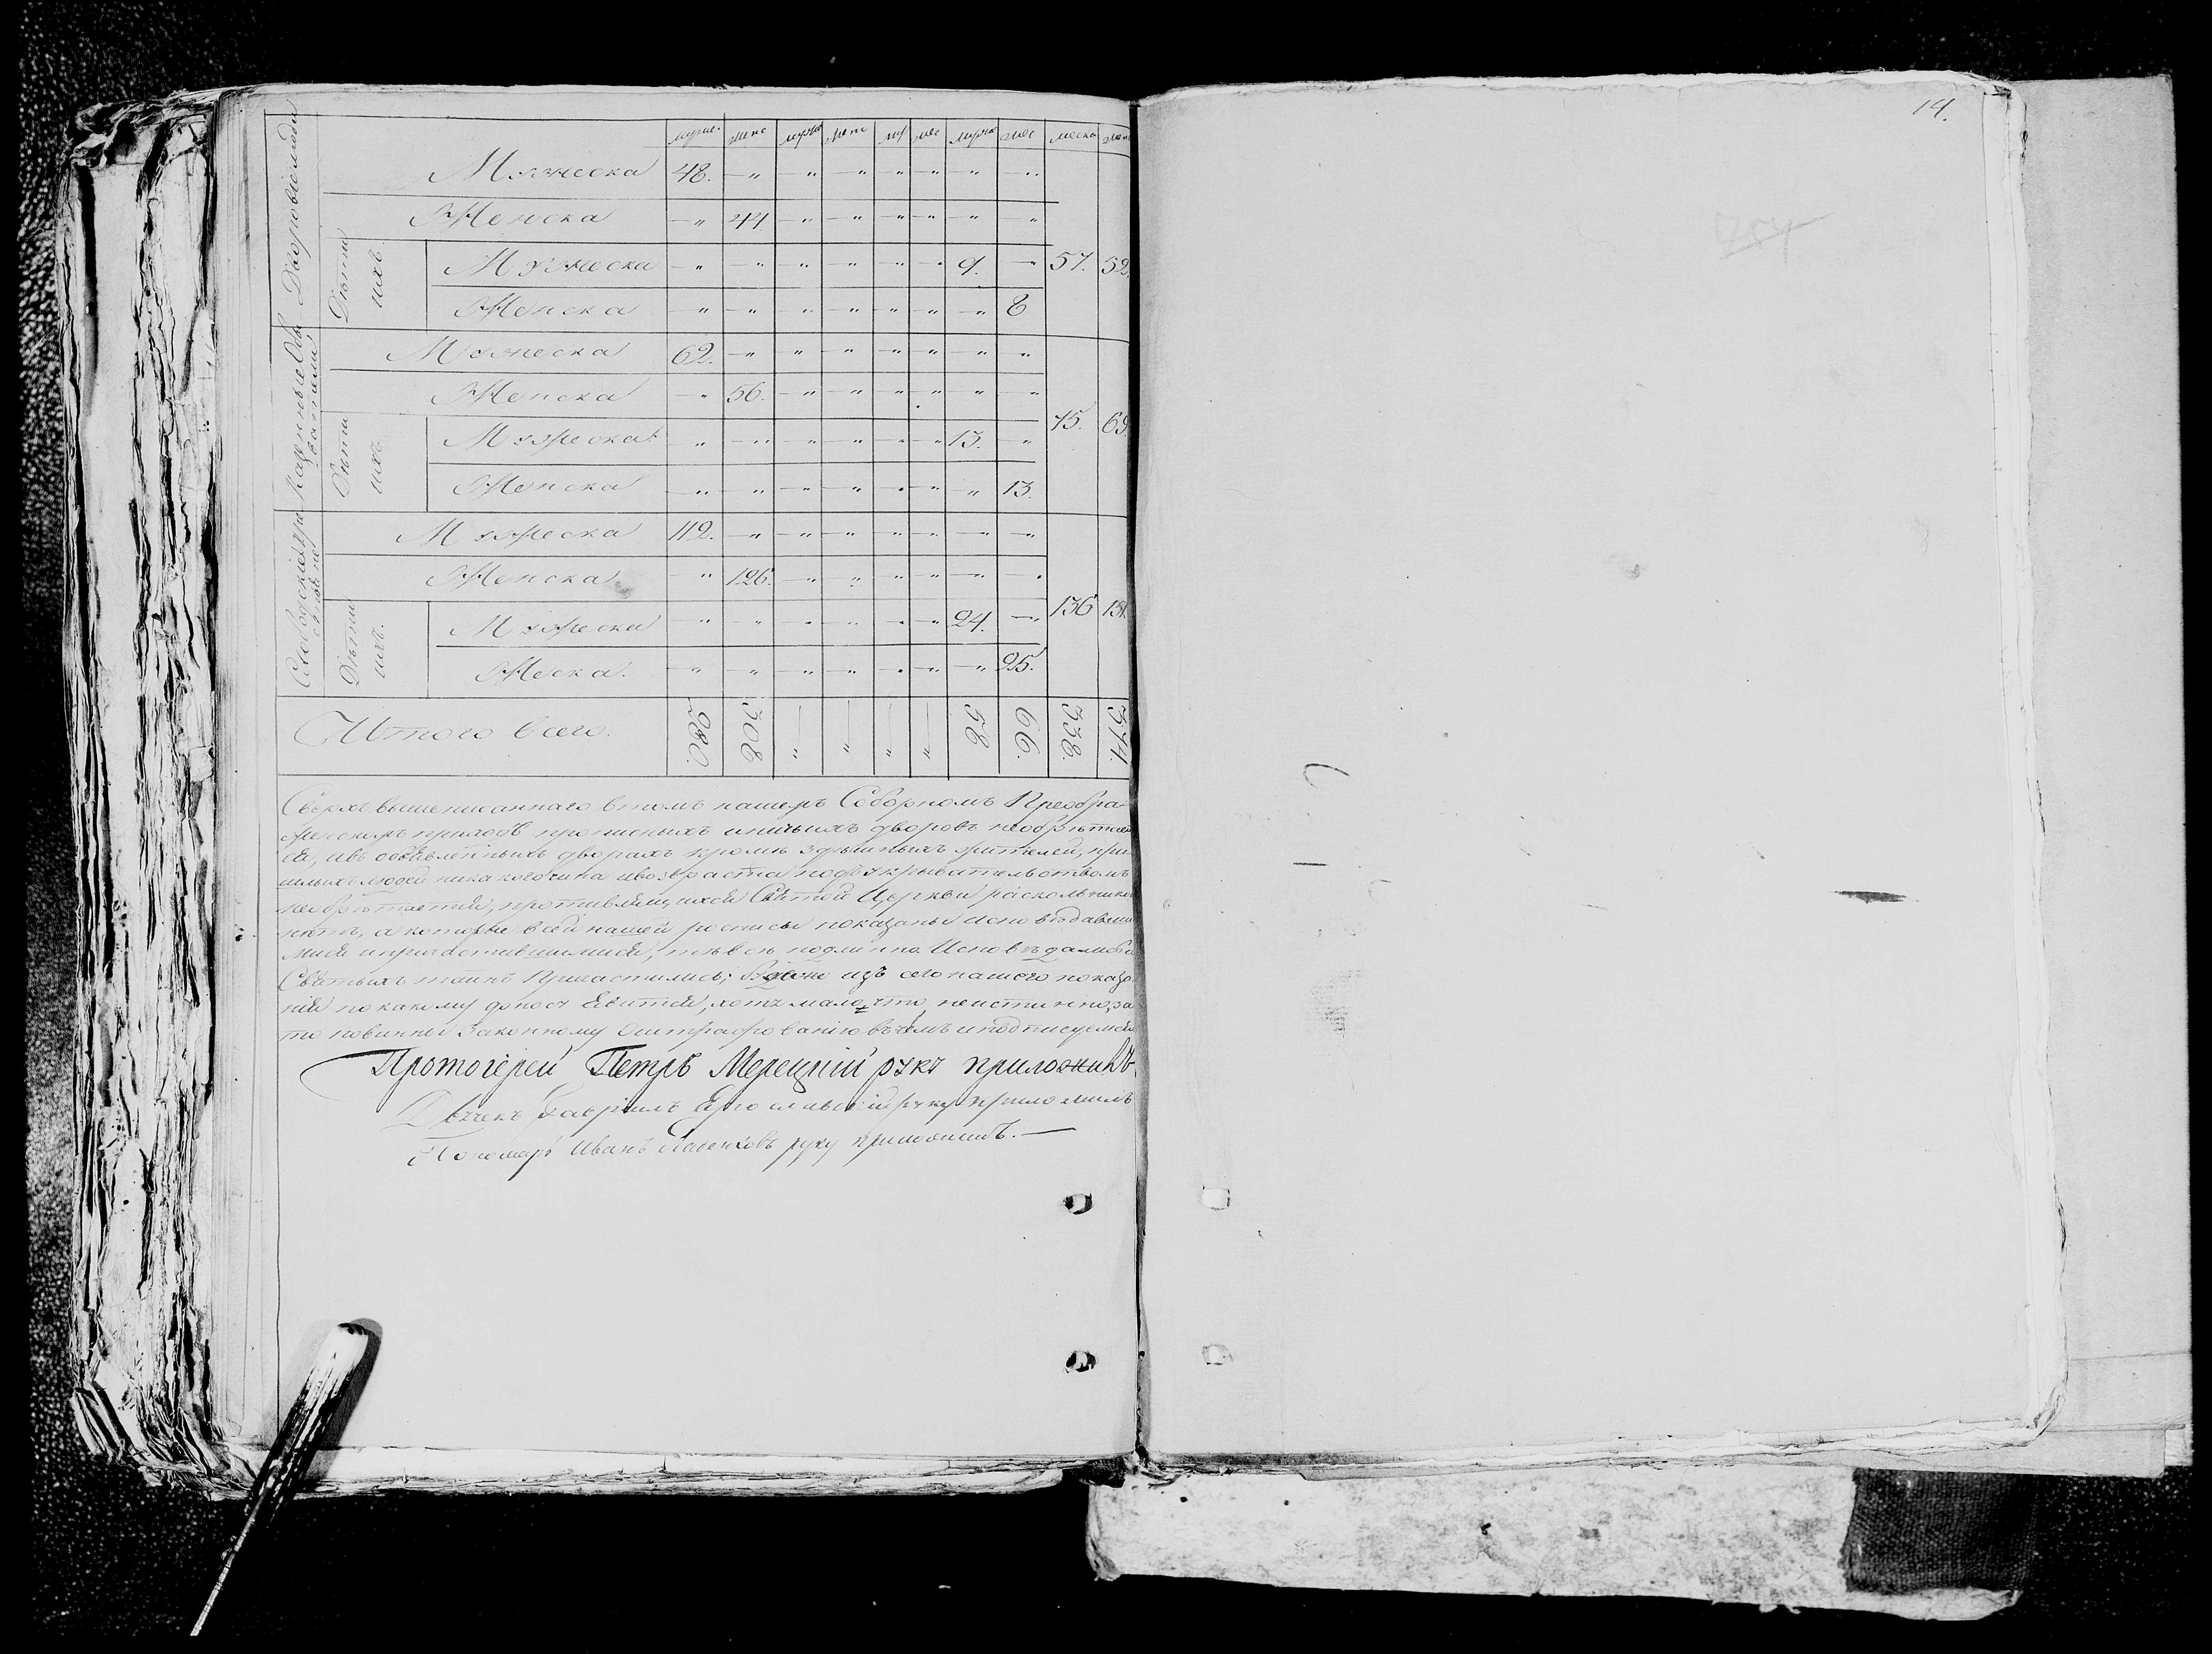 муже. женс муже женс му же мужс жес мужск женс
Дворовіелюди
Мужеска 48. — „ — „ — „ — „ — „ — „ — „
Женска — „ 44 — „ — „ — „ — „ — „ — „
Дѣти ихъ
Мужеска — „ — „ — „ — „ — „ — „ 9. — „ 57. 52.
Женска — „ — „ — „ — „ — „ — „ — „ 8
Казенныя
Мужеска 62. — „ — „ — „ — „ — „ — „ — „
Женска — „ 56. — „ — „ — „ — „ — „ — „
Дѣти ихъ
Мужеска — „ — „ — „ — „ — „ — „ 13. — „ 75. 69.
Женска — „ — „ — „ — „ — „ — „ — „ 13.
Слободскіе
Мужеска 112. — „ — „ — „ — „ — „ — „ — „
Женска — „ 126. — „ — „ — „ — „ — „ — „
Дѣти ихъ.
Мужеска — „ — „ — „ — „ — „ — „ 24. — „ 136 151.
Жеска. — „ — „ — „ — „ — „ — „ — „ 25.
Итого всего. 280. 308 — „ — „ — „ — „ 58 66. 338. 374.
Сверхъ вышеписаннаго втомъ нашемъ Соборномъ Преобра-
женскомъ приходѣ прописныхъ иничьихъ дворовъ необрѣтает
ся, ивъ объявленныхъ дворахъ кромѣ здѣшныхъ жителей, при-
шлыхъ людей никакогочина ивозраста подъукрывательствомъ
необрѣтается, противлящихся Святой Церкви раскольников
нѣтъ, а которые всей нашей росписи показаны исповѣдавши
мися ипричастившимися, тѣ всѣ подлинно Исповѣдались и
Святыхъ таинъ Причастились; изъ сего нашего показа
нія покакому доносу явится, хотя мало что неистинно, за
то повинны законному оштрафованію въчемъ иподписуемся
Протоіерей Петръ Мерецкій руку приложилъ
Дячекъ Гавріилъ руку приложилъ
Пономарь Иванъ руку приложилъ. —
14.
754